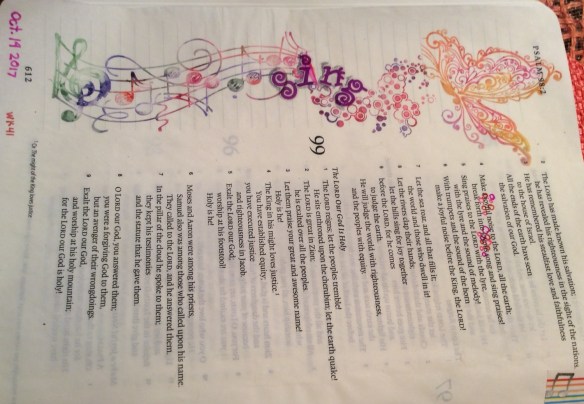 PSALM 98:2
2 The LORD has made known his salvation;
he has revealed his righteousness in the sight of the nations.
3 He has remembered his steadfast love and faithfulness
to the house of Israel.
All the ends of the earth have seen
the salvation of our God.
4 Make a joyful noise to the LORD, all the earth;
break forth into joyous song and sing praises!
5 Sing praises to the LORD with the lyre,
with the lyre and the sound of melody!
6 With trumpets and the sound of the horn
make a joyful noise before the King, the LORD!
7 Let the sea roar, and all that fills it;
the world and those who dwell in it!
8 Let the rivers clap their hands;
let the hills sing for joy together
9 before the LORD, for he comes
to judge the earth.
He will judge the world with righteousness,
and the peoples with equity.
99
The LORD Our God Is Holy
1 The LORD reigns; let the peoples tremble!
He sits enthroned upon the cherubim; let the earth quake!
2 The LORD is great in Zion;
he is exalted over all the peoples.
3 Let them praise your great and awesome name!
Holy is he!
4 The King in his might loves justice.1
You have established equity;
you have executed justice
and righteousness in Jacob.
5 Exalt the LORD our God;
worship at his footstool!
Holy is he!
6 Moses and Aaron were among his priests,
Samuel also was among those who called upon his name.
They called to the LORD, and he answered them.
7 In the pillar of the cloud he spoke to them;
they kept his testimonies
and the statute that he gave them.
8 O LORD our God, you answered them;
you were a forgiving God to them,
but an avenger of their wrongdoings.
9 Exalt the LORD our God,
and worship at his holy mountain;
for the LORD our God is holy!
1 Or The might of the King loves justice
612
Sing
Oct. 14 2017
WK41